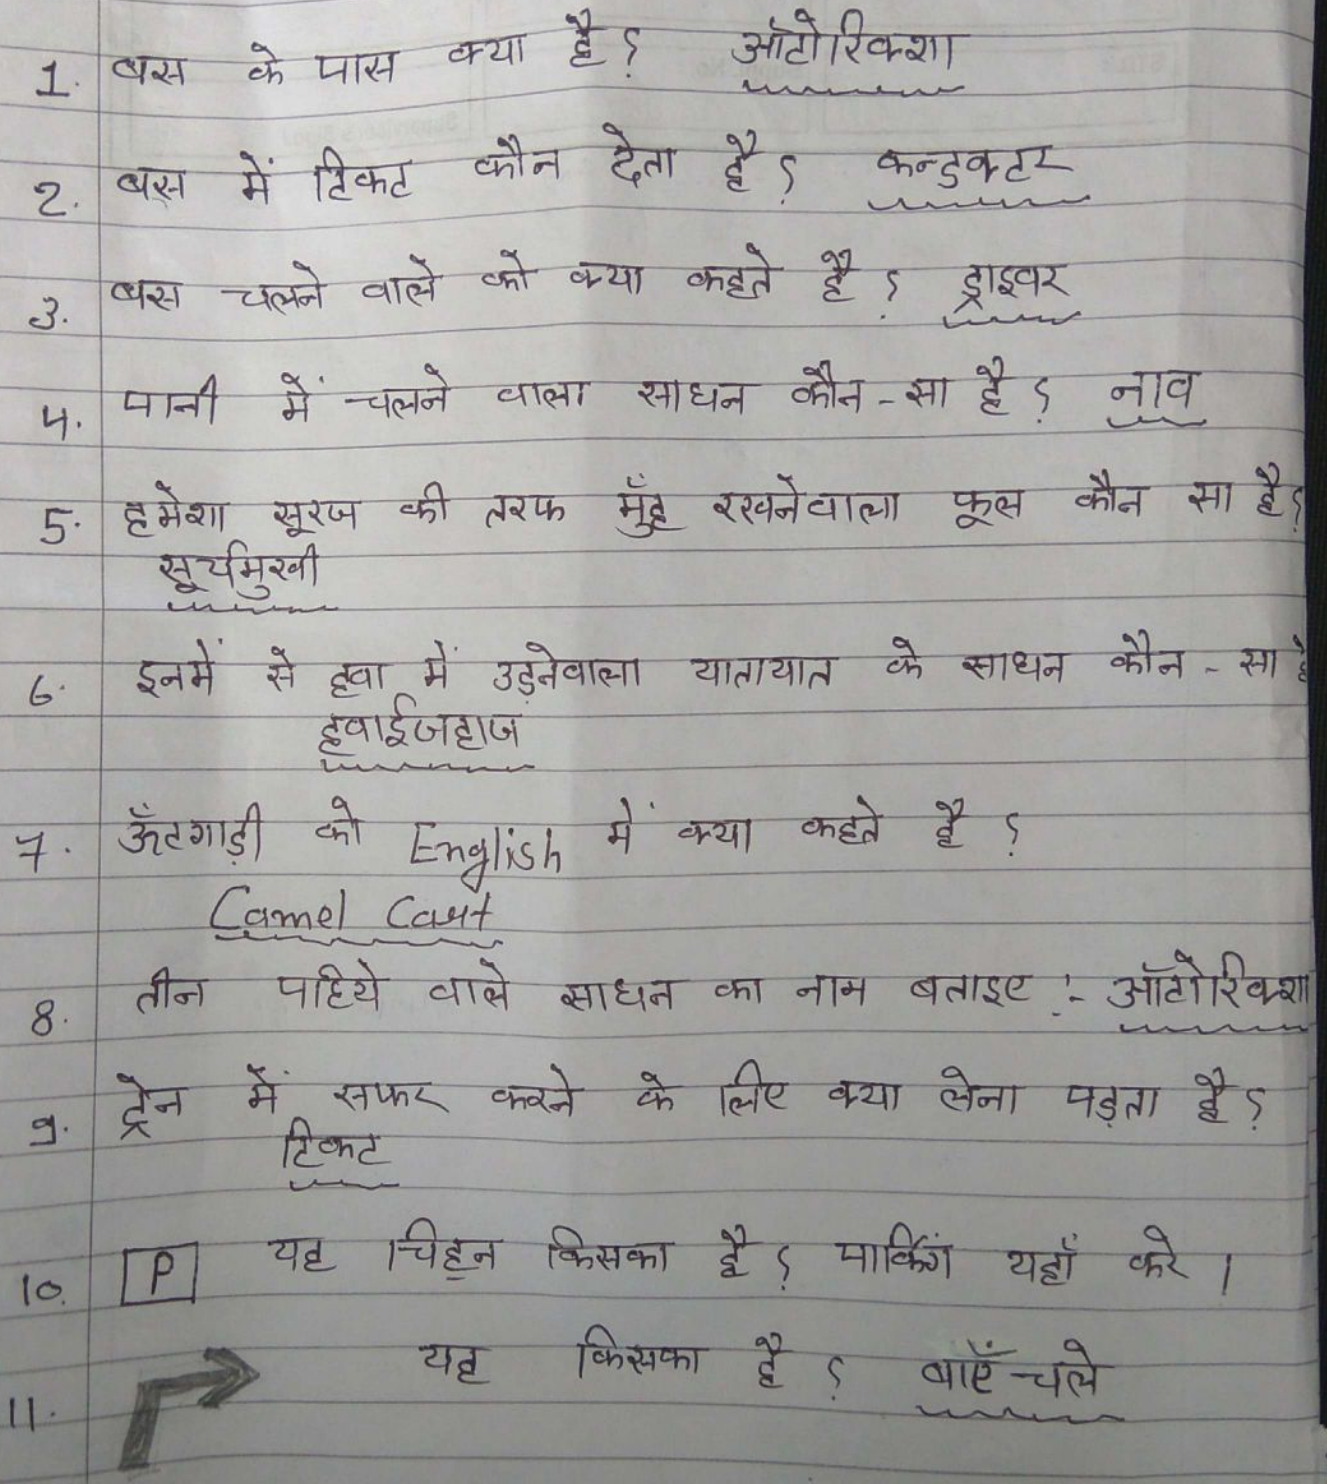 1. बस के पास क्या है? ऑटोरिक्शा
2. बस में टिकट कौन देता है? कन्डुक्टर
3. बस चलने वाले को क्या कहते है? ड्राइवर
4. पानी में चलने वाला साधन कौन-सा है? नाव
5. हमेशा सूरज की तरफ मुँह रखनेवाला फूल कौन सा है?
सूर्यमुखी
6. इनमें से हवा में उड़नेवाला यातायात के साधन कौन-सा है
हवाईजहाज
7. ऊँटगाड़ी को English में क्या कहते है?
Camel Cart
8. तीन पहिये वाले साधन का नाम बताइए :- ऑटोरिक्शा
9. ट्रेन में सफर करने के लिए क्या लेना पड़ता है?
टिकट
10. P यह चिह्न किसका है? पार्किंग यहाँ करे।
11. यह किसका है? बाएँ चले